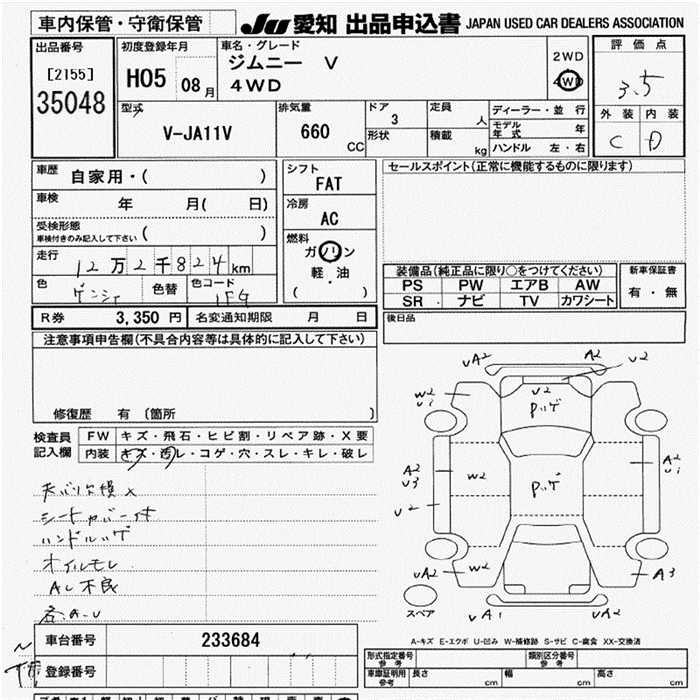 車内保管・守衛保管 JU 愛知 出品申込書 JAPAN USED CAR DEALERS ASSOCIATION
出品番号
[2155]
35048
初度登録年月
H05 08月
車名・グレード
ジムニー V
4WD
2WD
4WD
評価点
3.5
外装 内装
C D
型式
V-JA11V
排気量
660
CC
ドア
3
形状
定員
人
積載
kg
ディーラー・並行
モデル年式 年
ハンドル 左・右
車歴
自家用・( )
車検 年 月( 日)
受検形態
車検付きのみ記入して下さい ( )
走行
12万2千824km
色 色替 色コード
シフト
FAT
冷房
AC
燃料
ガソリン
軽・油
( )
セールスポイント(正常に機能するものに限ります)
装備品(純正品に限り○をつけてください)
PS PW エアB AW
SR ナビ TV カワシート
新車保証書
有・無
後日品
R券 3,350円 名変通知期限 月 日
注意事項申告欄(不具合内容等は具体的に記入して下さい)
修復歴 有 〔箇所 〕
検査員記入欄
FW キズ・飛石・ヒビ割・リペア跡・X要
内装 キズ・汚レ・コゲ・穴・スレ・キレ・破レ
シートカバー付
ハンドルハゲ
オイルモレ
AC不良
車台番号 233684
登録番号
VA2 A2 V2
W2
V1
V2
Pハゲ
A2
V3
W2
Pハゲ
A2
V1
V2
VA2
W2
A3
VA1 VA2
スペア
A-キズ E-エクボ U-凹み W-補修跡 S-サビ C-腐食 XX-交換済
形式指定番号 参考 類別区分番号 参考
車庫証明用 参考 長さ cm 幅 cm 高さ cm